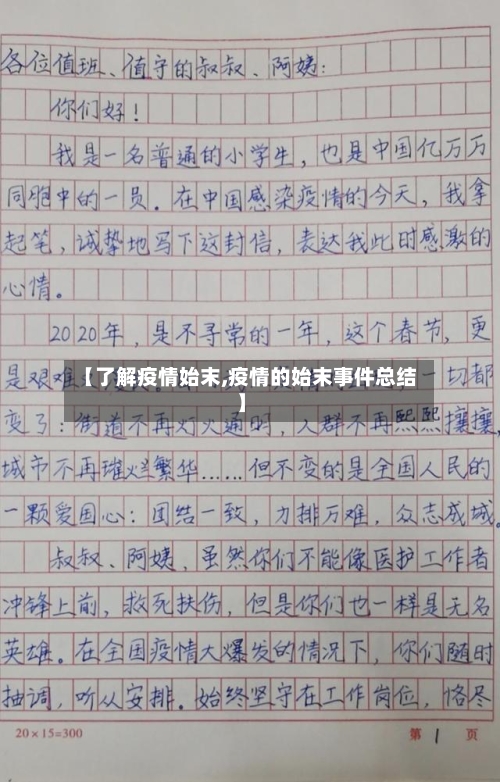 各位值班、值守的叔叔、阿姨：
你们好！
我是一名普通的小学生，也是中国亿万万
同胞中的一员。在中国感染疫情的今天，我拿
起笔，诚挚地写下这封信，表达我此时感激的
心情。
2020年，是不寻常的一年，这个春节，更
是艰难
【了解疫情始末,疫情的始末事件总结
】
一切都
变了：街道不再灯火通明，人群不再熙熙攘攘，
城市不再璀烂繁华……但不变的是全国人民的
一颗爱国心：团结一致，力排万难，众志成城。
叔叔、阿姨，虽然你们不能像医护工作者
冲锋上前，救死扶伤，但是你们也一样是无名
英雄。在全国疫情大爆发的情况下，你们随时
抽调，听从安排。始终坚守在工作岗位，恪尽
20×15=300 第 1 页